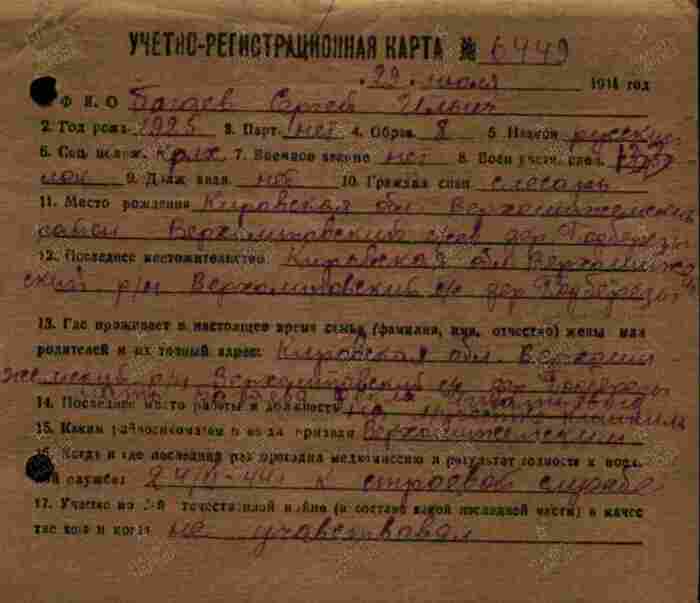 УЧЕТНО-РЕГИСТРАЦИОННАЯ КАРТА № 6449
"29" июля 1944 год
Ф И. О Багаев Сергей Ильич
2. Год рожд. 1925 3. Парт. нет 4. Образ. 8 5. Национ русский
6. Соц. полож. крлх 7. Военное звание нет 8. Воен учетн. спец.
9. Долж запа. нет 10. Граждан спец слесарь
11. Место рождения Кировская обл Верхошижемский
район Верхолиповский с/сов дер Подберезы
12. Последнее местожительство: Кировская обл Верхошижем
ский р/н Верхолиповский с/с дер Подберезы
13. Где проживает в настоящее время семья (фамилия, имя, отчество) жены или
родителей и их точный адрес: Кировская обл. Верхоши
жемский р/н Верхолиповский с/с дер Подберезы
14. Последнее место работы и должность
15. Каким райвоенкоматом и когда призван Верхошижемским
16. Когда и где последний раз проходил медкомиссию и результат годности к воен
ной службе: 24/VI-44г к строевой службе
17. Участие во 2-й отечественной войне (в составе какой последней части) в качес
тве кого и когда не участвовал